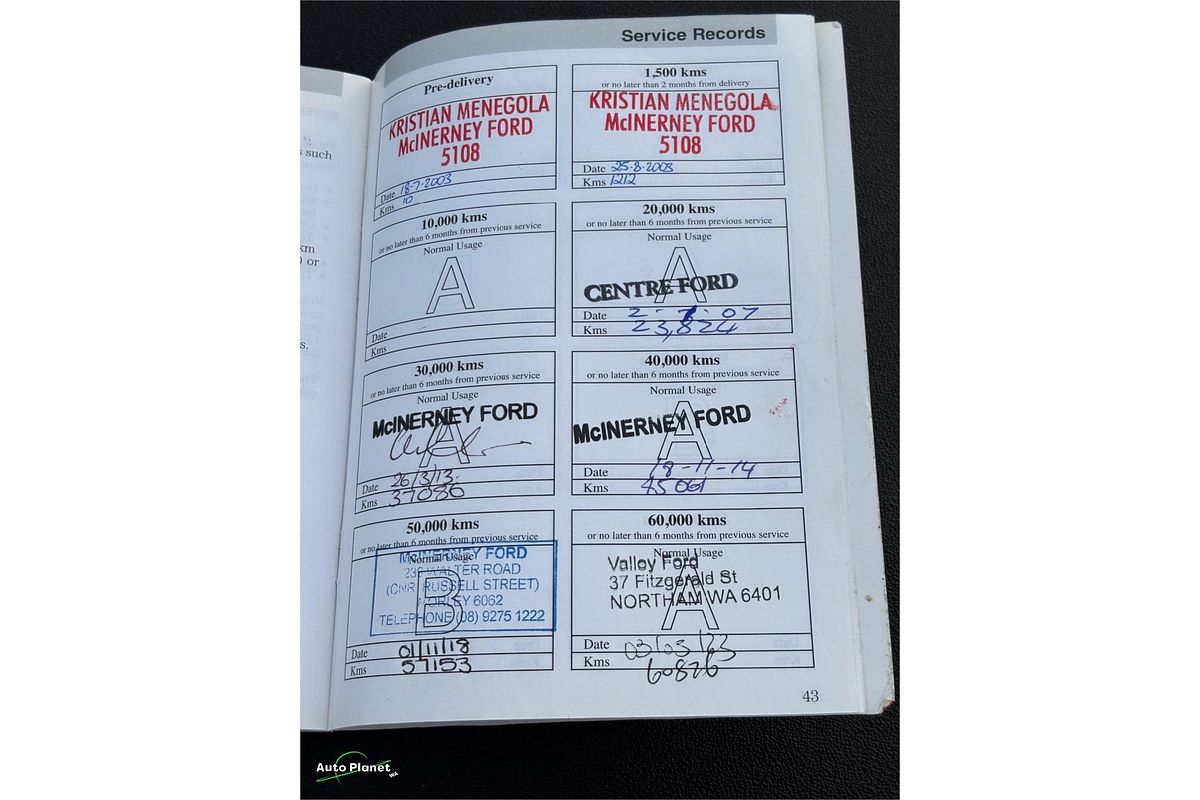 such
km
) or
s.
Service Records
Pre-delivery
KRISTIAN MENEGOLA
McINERNEY FORD
5108
Date 18-7-2003
Kms 10
1,500 kms
or no later than 2 months from delivery
KRISTIAN MENEGOLA
McINERNEY FORD
5108
Date 25-8-2003
Kms 1212
10,000 kms
or no later than 6 months from previous service
Normal Usage
A
Date
Kms
20,000 kms
or no later than 6 months from previous service
Normal Usage
A
CENTRE FORD
Date 2 - 7 - 07
Kms 23,824
30,000 kms
or no later than 6 months from previous service
Normal Usage
A
McINERNEY FORD
Date 26/3/13.
Kms 37086
40,000 kms
or no later than 6 months from previous service
Normal Usage
A
McINERNEY FORD
Date 18-11-14
Kms 45061
50,000 kms
or no later than 6 months from previous service
Normal Usage
B
McINERNEY FORD
WALTER ROAD
(CNR. RUSSELL STREET)
MORLEY 6062
TELEPHONE (08) 9275 1222
Date 01/11/18
Kms 57153
60,000 kms
or no later than 6 months from previous service
Normal Usage
A
Valley Ford
37 Fitzgerald St
NORTHAM WA 6401
Date 03/03/23
Kms 60826
43
Auto Planet
WA